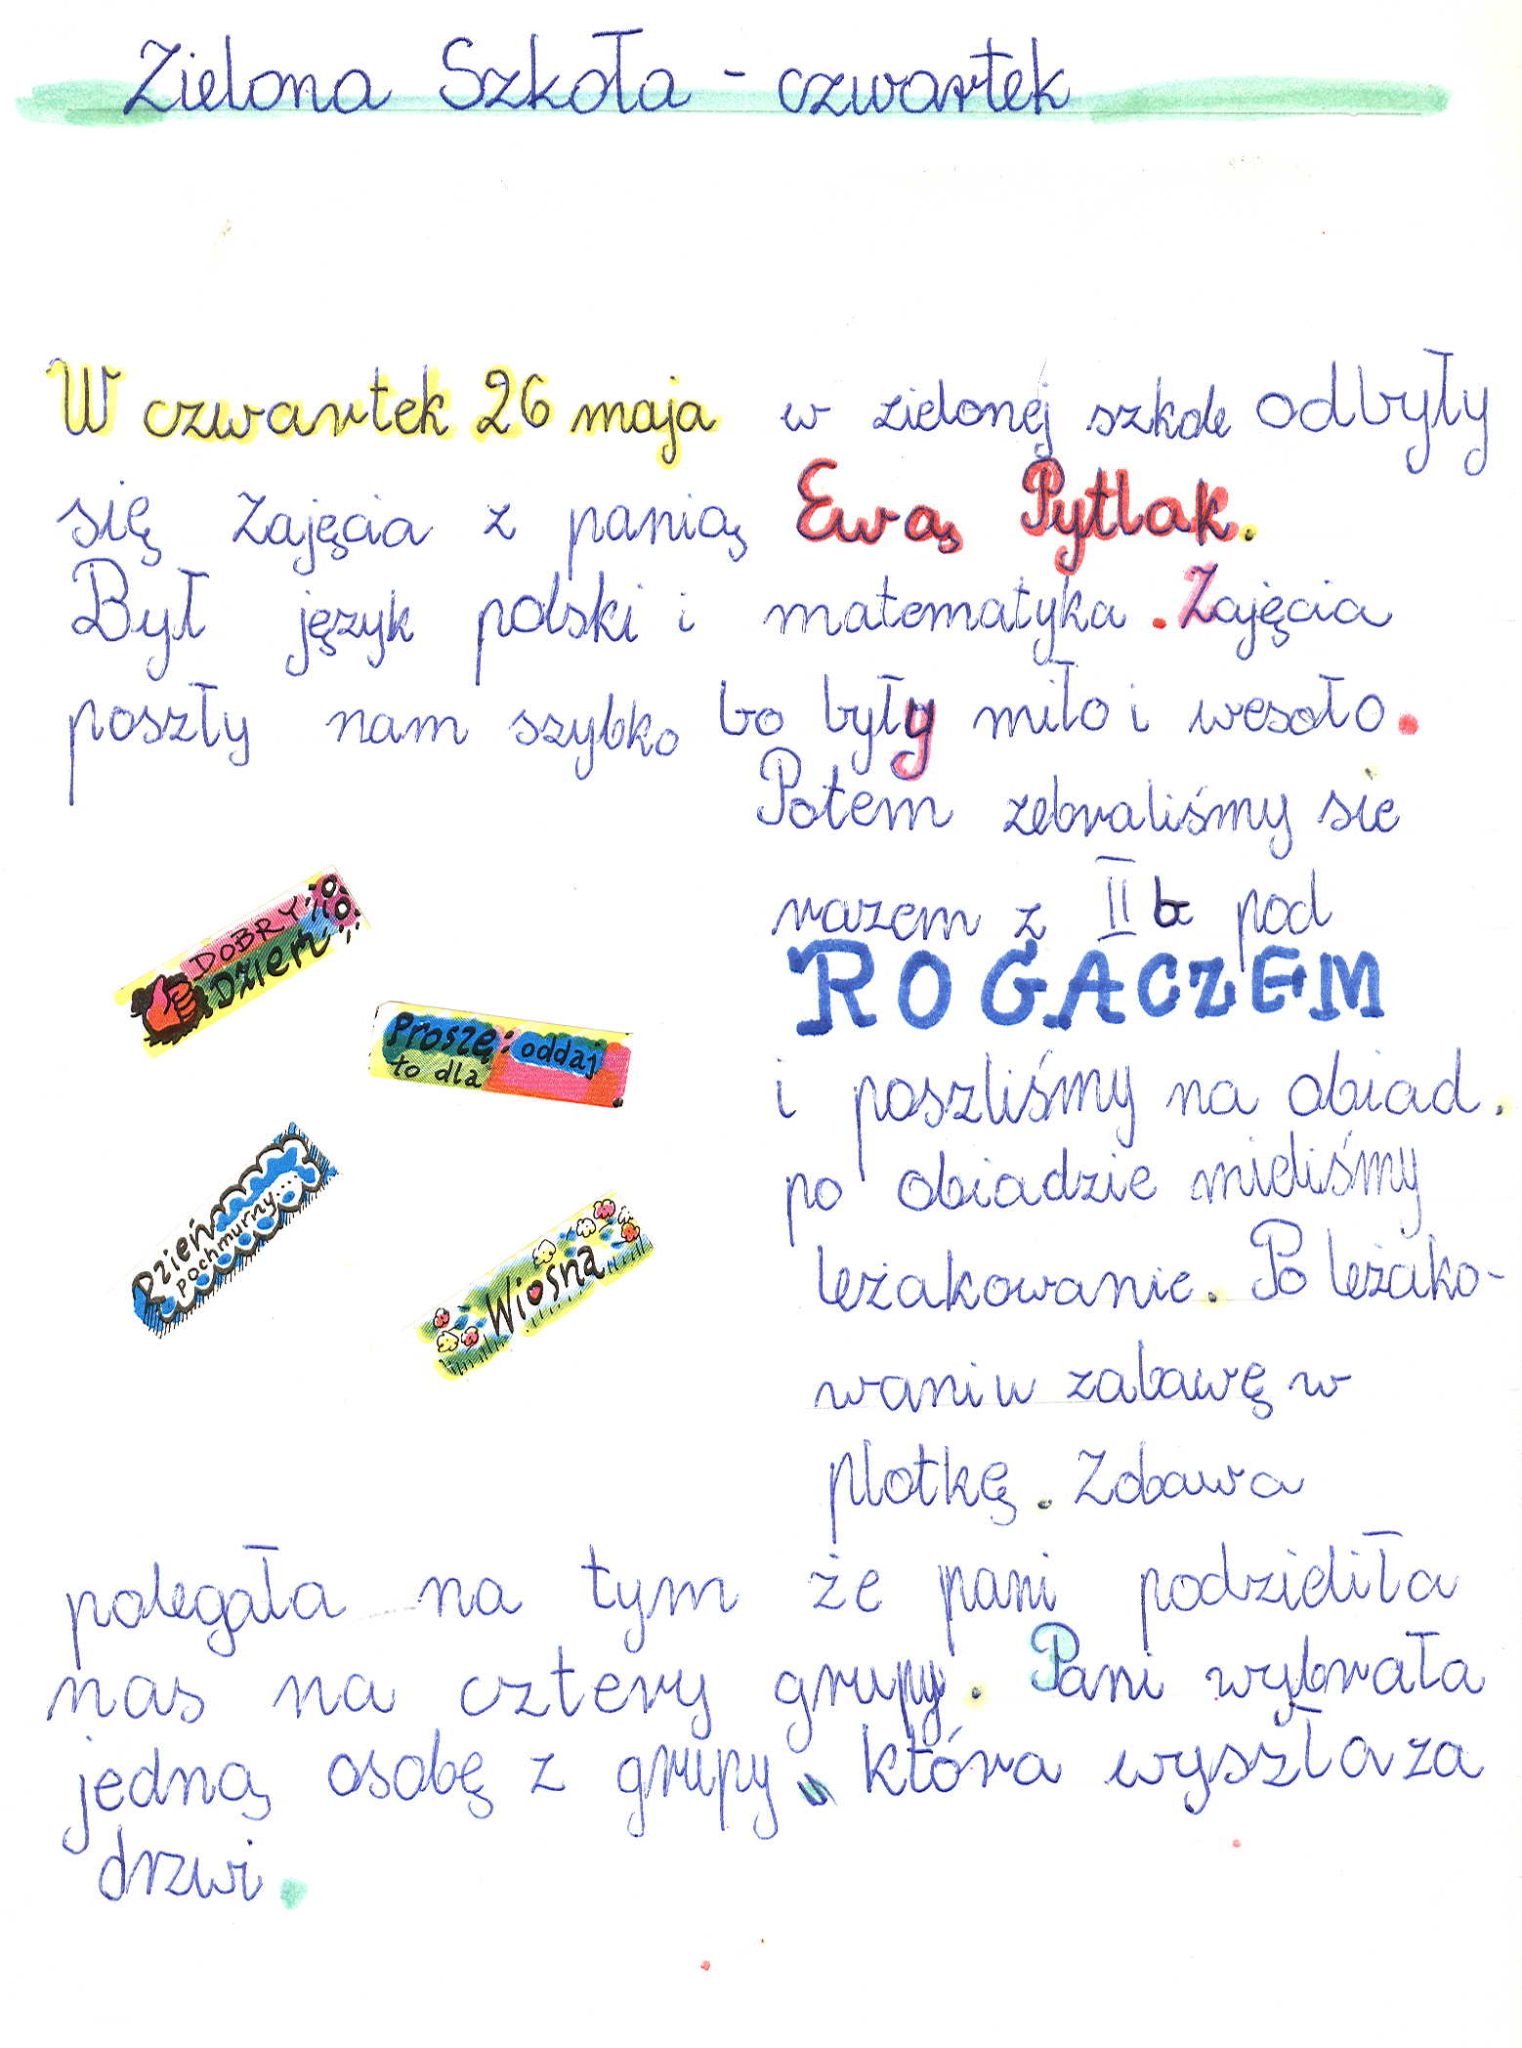 Zielona Szkoła - czwartek
W czwartek 26 maja w zielonej szkole odbyły
się zajęcia z panią Ewą Pytlak.
Był język polski i matematyka. Zajęcia
poszły nam szybko bo były miło i wesoło.
Potem zebraliśmy sie
razem z II b pod
ROGACZEM
i poszliśmy na obiad.
po obiadzie mieliśmy
leżakowanie. Po leżako-
waniu zabawę w
plotkę. Zabawa
DOBRY
DZIEŃ
Proszę: oddaj
to dla
Dzień
pochmurny
Wiosna
polegała na tym że pani podzieliła
nas na cztery grupy. Pani wybrała
jedną osobę z grupy, która wyszła za
drzwi.